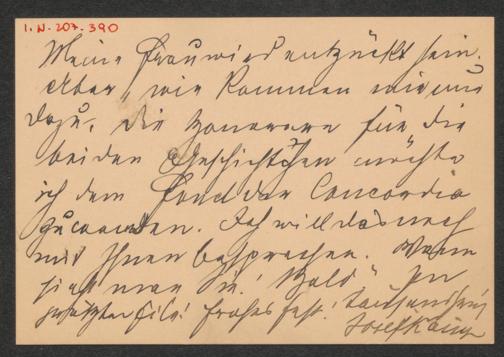 I.N. 207.390
Meine Frau wird entzückt sein.
Aber, wie kommen wir nur
dazu. Die Honorare für die
beiden Geschichtchen möchte
ich dem Fond der Concordia
zuwenden. Ich will das noch
mit Ihnen besprechen. Wann
sieht man Sie? "Bald" In
Eile! Frohes Fest! Tausend